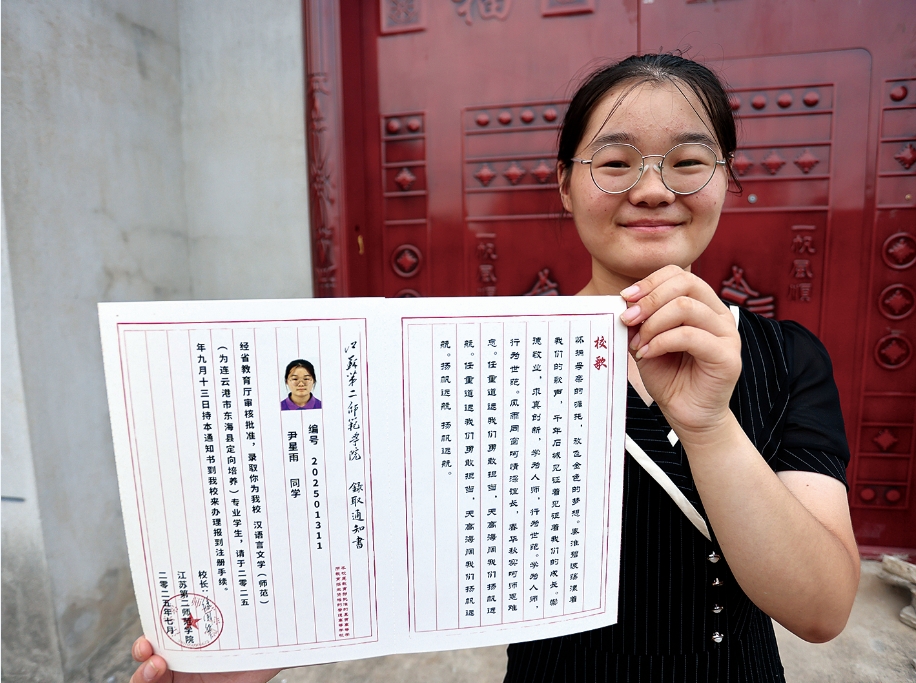 福
一帆風順
一帆風
校歌
母亲的嘱托，放飞金色的梦想。秦淮碧波荡漾着
我们的歌声，千年石城见证着见证着我们的成长。崇
德敬业，求真创新，学为人师，行为世范。学为人师，
行为世范。风雨同窗呵情深谊长，春华秋实呵师恩难
忘。任重道远我们勇敢担当，天高海阔我们扬帆远
航。任重道远我们勇敢担当，天高海阔我们扬帆远
航。扬帆远航 扬帆远航。
江蘇第二師範學院 錄取通知書
编号 202501311
尹星雨 同学
经省教育厅审核批准，录取你为我校 汉语言文学（师范）
（为连云港市东海县定向培养）专业学生，请于二零二五
年九月十三日持本通知书到我校来办理报到注册手续。
校长：
江苏第二师范学院
二零二五年七月